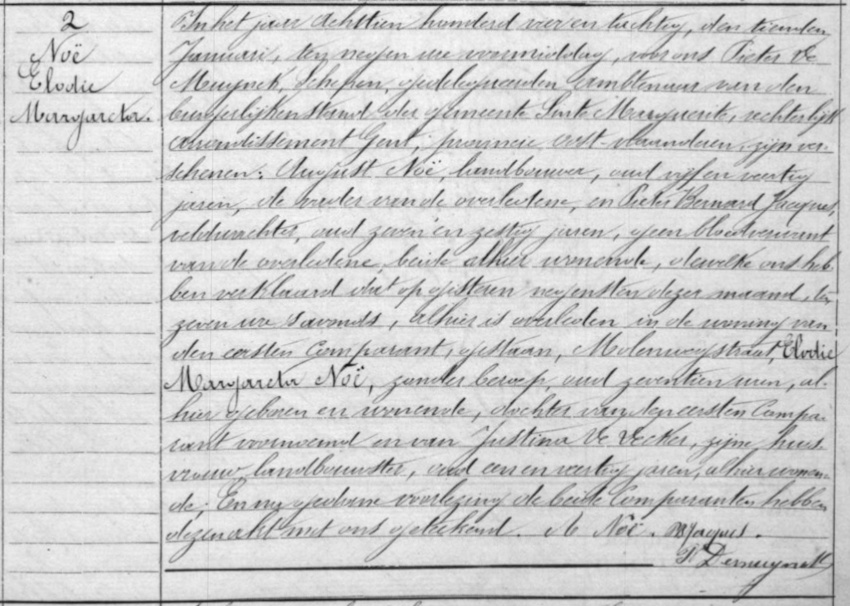 2
Noë
Elodie
Margareta.
In het jaar achttien honderd vier en tachtig, den tienden
Januari, ten negen ure voormiddag, voor ons Pieter De
Muynck, schepen, gedelegueerden ambtenaar van den
burgerlijken stand der gemeente Sinte Marguerite, rechterlijk
arrondissement Gent, provincie oost-vlaanderen, zijn ver-
schenen: August Noë, landbouwer, oud vijf en veertig
jaren, de vader van de overledene, en Pieter Bernard Jacques,
veldwachter, oud zeven en zestig jaren, geen bloedverwant
van de overledene, beide alhier wonende, dewelke ons heb-
ben verklaard dat op gisteren negensten dezer maand, ten
zeven ure s'avonds, alhier is overleden in de woning van
den eersten comparant, gestaan, Molenwegstraat, Elodie
Margareta Noë, zonder beroep, oud zeventien uren, al-
hier geboren en wonende, dochter van den eersten Compa-
rant voornoemd en van Justina De Decker, zijne huis-
vrouw, landbouwster, oud een en veertig jaren, alhier wonen-
de. En na gedane voorlezing de beide Comparanten hebben
deze nakt met ons geteekend. Noë. Jacques.
P. Demuynck